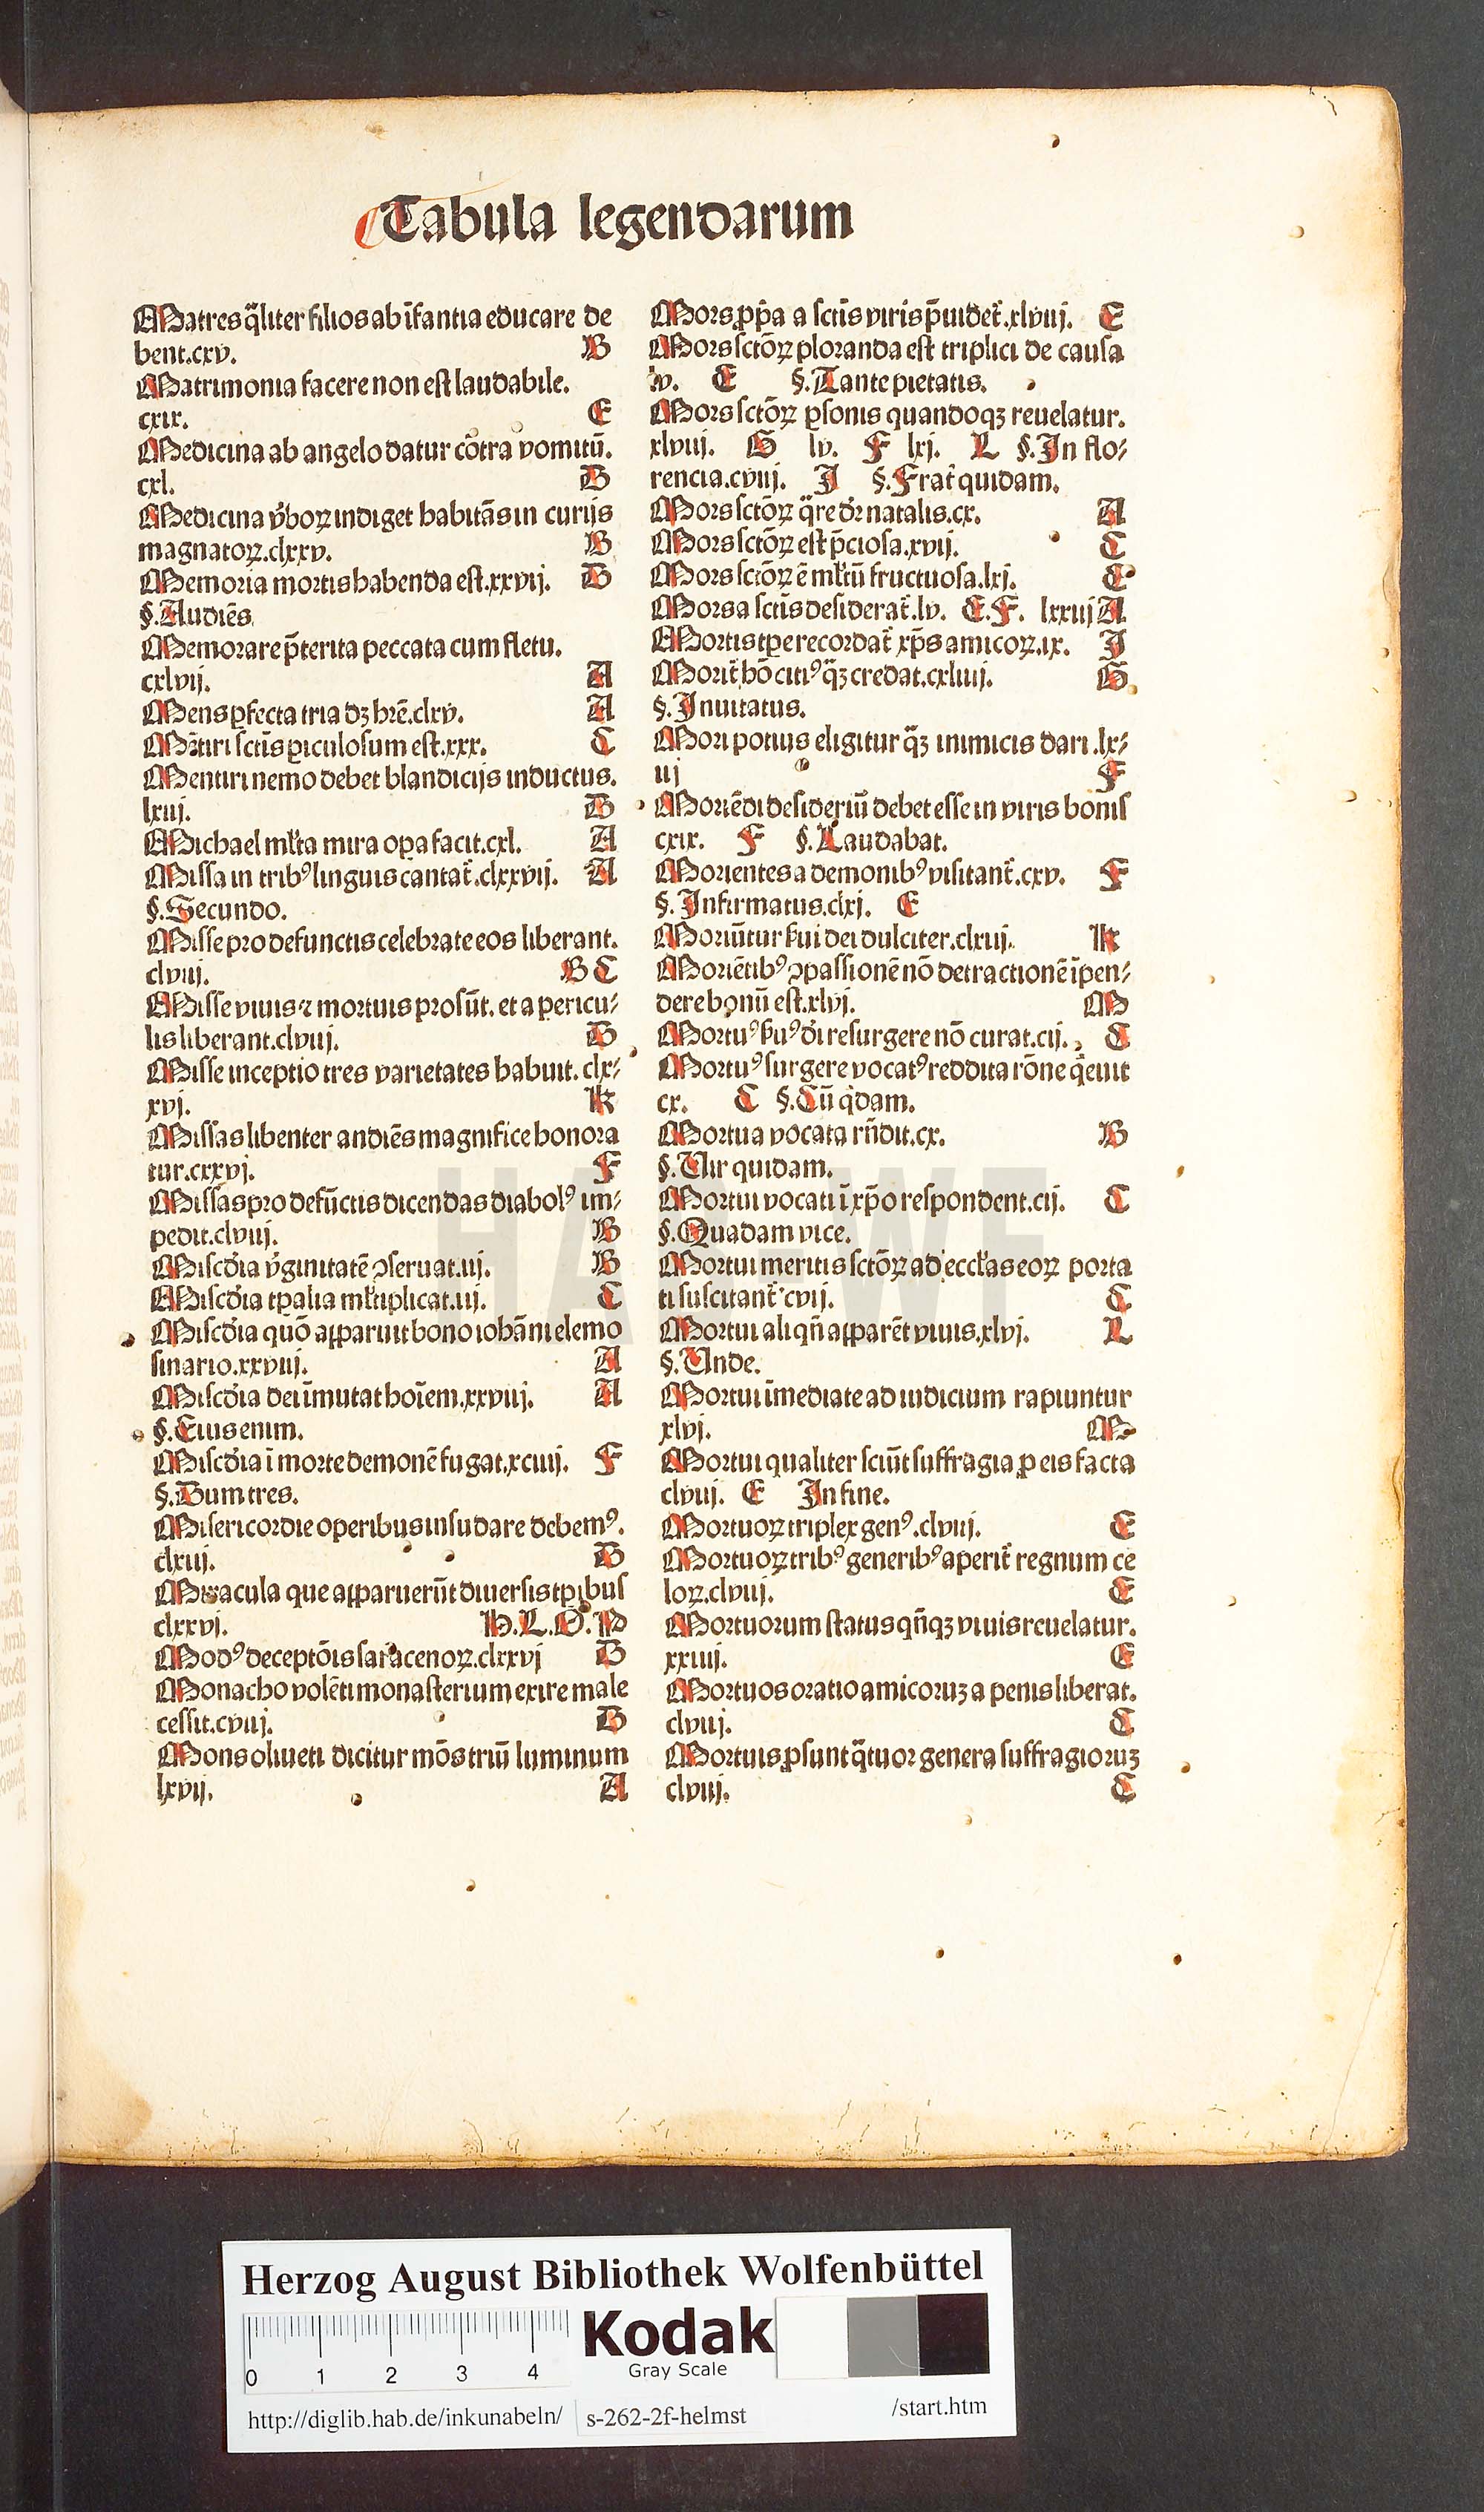 Tabula legendarum
Matres q̃liter filios ab ĩfantia educare de
bent.cxv. B
Matrimonia facere non est laudabile.
cxix. E
Medicina ab angelo datur cõtra vomitũ.
cxl. D
Medicina v̾boꝝ indiget habitãs in curijs
magnatoꝝ.clxxv. B
Memoria mortis habenda est.xxvij. D
§.Audiẽs.
Memorare p̃terita peccata cum fletu.
cxlvij. A
Mens ꝑfecta tria dꝫ hr̃e.clxv. A
Mẽtiri sctĩs ꝑiculosum est.xxx. C
Mentiri nemo debet blandicijs inductus.
lxiij. D
Michael ml̃ta mira oꝑa facit.cxl. A
Missa in tribꝰ linguis cantat̃.clxxvij. A
§.Secundo.
Misse pro defunctis celebrate eos liberant.
clviij. B C
Misse viuis ⁊ mortuis prosũt. et a pericu⸗
lis liberant.clviij. D
Misse inceptio tres varietates habuit. clx⸗
xvj. K
Missas libenter andiẽs magnifice honora
tur.cxxvj. F
Missas pro defũctis dicendas diabolꝰ im⸗
pedit.clviij. B
Misc̃dia v̾ginitatẽ ꝯseruat.iij. B
Misc̃dia tꝑalia ml̃tiplicat.iij. C
Misc̃dia quõ apparuit bono iohãni elemo
sinario.xxviij. A
Misc̃dia dei ĩmutat hoĩem.xxviij. A
§.Eius enim.
Misc̃dia ĩ morte demonẽ fugat.xciiij. F
§.Dum tres.
Misericordie operibus insudare debemꝰ.
clxiij. D
Miracula que apparuerũt diuersis tꝑibus
clxxvj. H.L.O.P
Modꝰ deceptõis saracenoꝝ.clxxvj D
Monacho volẽti monasterium exire male
cessit.cviij. D
Mons oliueti dicitur mõs triũ luminum
lxvij. A
Mors ꝓp̃a a sctĩs viris p̃uidet̃.xlviij. E
Mors sctõꝝ ploranda est triplici de causa
lv. E §.Tante pietatis.
Mors sctõꝝ ꝑsonis quandoqꝫ reuelatur.
xlviij. G lv. F lxj. L §.In flo⸗
rencia.cviij. I §.Frat̃ quidam.
Mors sctõꝝ q̃re dr̃ natalis.cx. A
Mors sctõꝝ est p̃ciosa.xvij. C
Mors sctõꝝ ẽ ml̃tũ fructuosa.lxj. C
Mors a sctĩs desiderat̃.lv. E.F. lxxiij A
Mortis tꝑe recordat̃ xp̃s amicoꝝ.ix. I
Morit̃ hõ citiꝰ q̃ꝫ credat.cxliiij. G
§.Inuitatus.
Mori potius eligitur q̃ꝫ inimicis dari .lx⸗
iij F
Moriẽdi desideriũ debet esse in viris bonis
cxix. F §.Laudabat.
Morientes a demonibꝰ visitant̃.cxv. F
§.Infirmatus.clxj. E
Moriũtur s̃ui dei dulciter.clxiij. K
Moriẽtibꝰ ꝯpassionẽ nõ detractionẽ ĩpen⸗
dere bonũ est.xlvj. M
Mortuꝰ s̃uꝰ di resurgere nõ curat.cij. C
Mortuꝰ surgere vocatꝰ reddita rõne q̃euit
cx. C §.Cũ q̃dam.
Mortua vocata rñdit.cx. B
§.Vir quidam.
Mortui vocati ĩ xp̃o respondent.cij. C
§.Quadam vice.
Mortui meritis sctõꝝ ad eccl̃as eoꝝ porta
ti suscitant̃ cvij. C
Mortui aliqñ apparẽt viuis.xlvj. L
§.Unde.
Mortui ĩmediate ad iudicium rapiuntur
xlvj. M
Mortui qualiter sciũt suffragia ꝓ eis facta
clviij. E In fine.
Mortuoꝝ triplex genꝰ.clviij. E
Mortuoꝝ tribꝰ generibꝰ aperit̃ regnum ce
loꝝ.clviij. E
Mortuorum status qñqꝫ viuis reuelatur.
xxiiij. E
Mortuos oratio amicoruꝫ a penis liberat.
clviij. C
Mortuis ꝓsunt q̃tuor genera suffragioruꝫ
clviij. C
HAB-WF
Herzog August Bibliothek Wolfenbüttel
0 1 2 3 4
Kodak
Gray Scale
http://diglib.hab.de/inkunabeln/ s-262-2f-helmst /start.htm